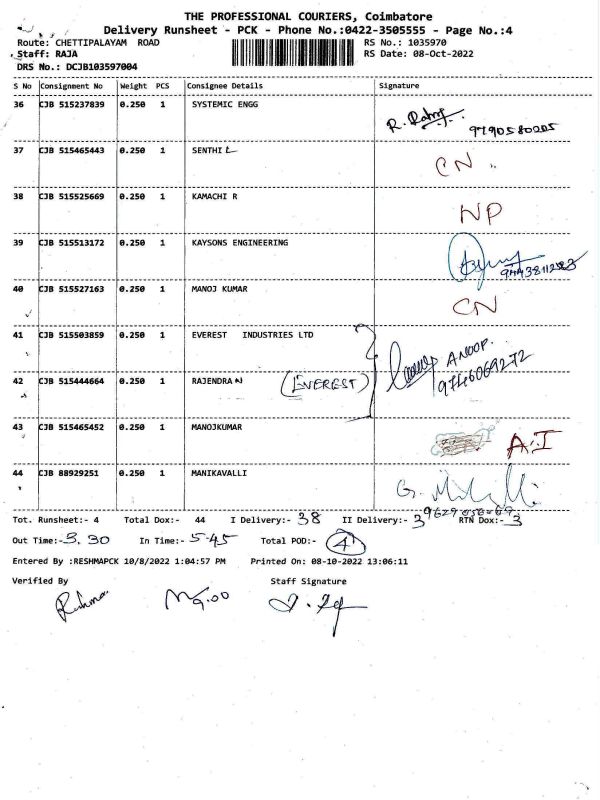 THE PROFESSIONAL COURIERS, Coimbatore
Delivery Runsheet - PCK - Phone No.:0422-3505555 - Page No.:4
Route: CHETTIPALAYAM ROAD RS No.: 1035970
Staff: RAJA RS Date: 08-Oct-2022
DRS No.: DCJB103597004
S No Consignment No Weight PCS Consignee Details Signature
36 CJB 515237839 0.250 1 SYSTEMIC ENGG
9790580005
37 CJB 515465443 0.250 1 SENTHIL CN
38 CJB 515525669 0.250 1 KAMACHI R NP
39 CJB 515513172 0.250 1 KAYSONS ENGINEERING
40 CJB 515527163 0.250 1 MANOJ KUMAR CN
41 CJB 515503859 0.250 1 EVEREST INDUSTRIES LTD ANOOP.
9746069272
42 CJB 515444664 0.250 1 RAJENDRAN (EVEREST)
43 CJB 515465452 0.250 1 MANOJKUMAR A.I
44 CJB 88929251 0.250 1 MANIKAVALLI
Tot. Runsheet:- 4 Total Dox:- 44 I Delivery:- 38 II Delivery:- 3 RTN Dox:- 3
Out Time:- 3.30 In Time:- 5-45 Total POD:- 41
Entered By :RESHMAPCK 10/8/2022 1:04:57 PM Printed On: 08-10-2022 13:06:11
Verified By Staff Signature
9.00